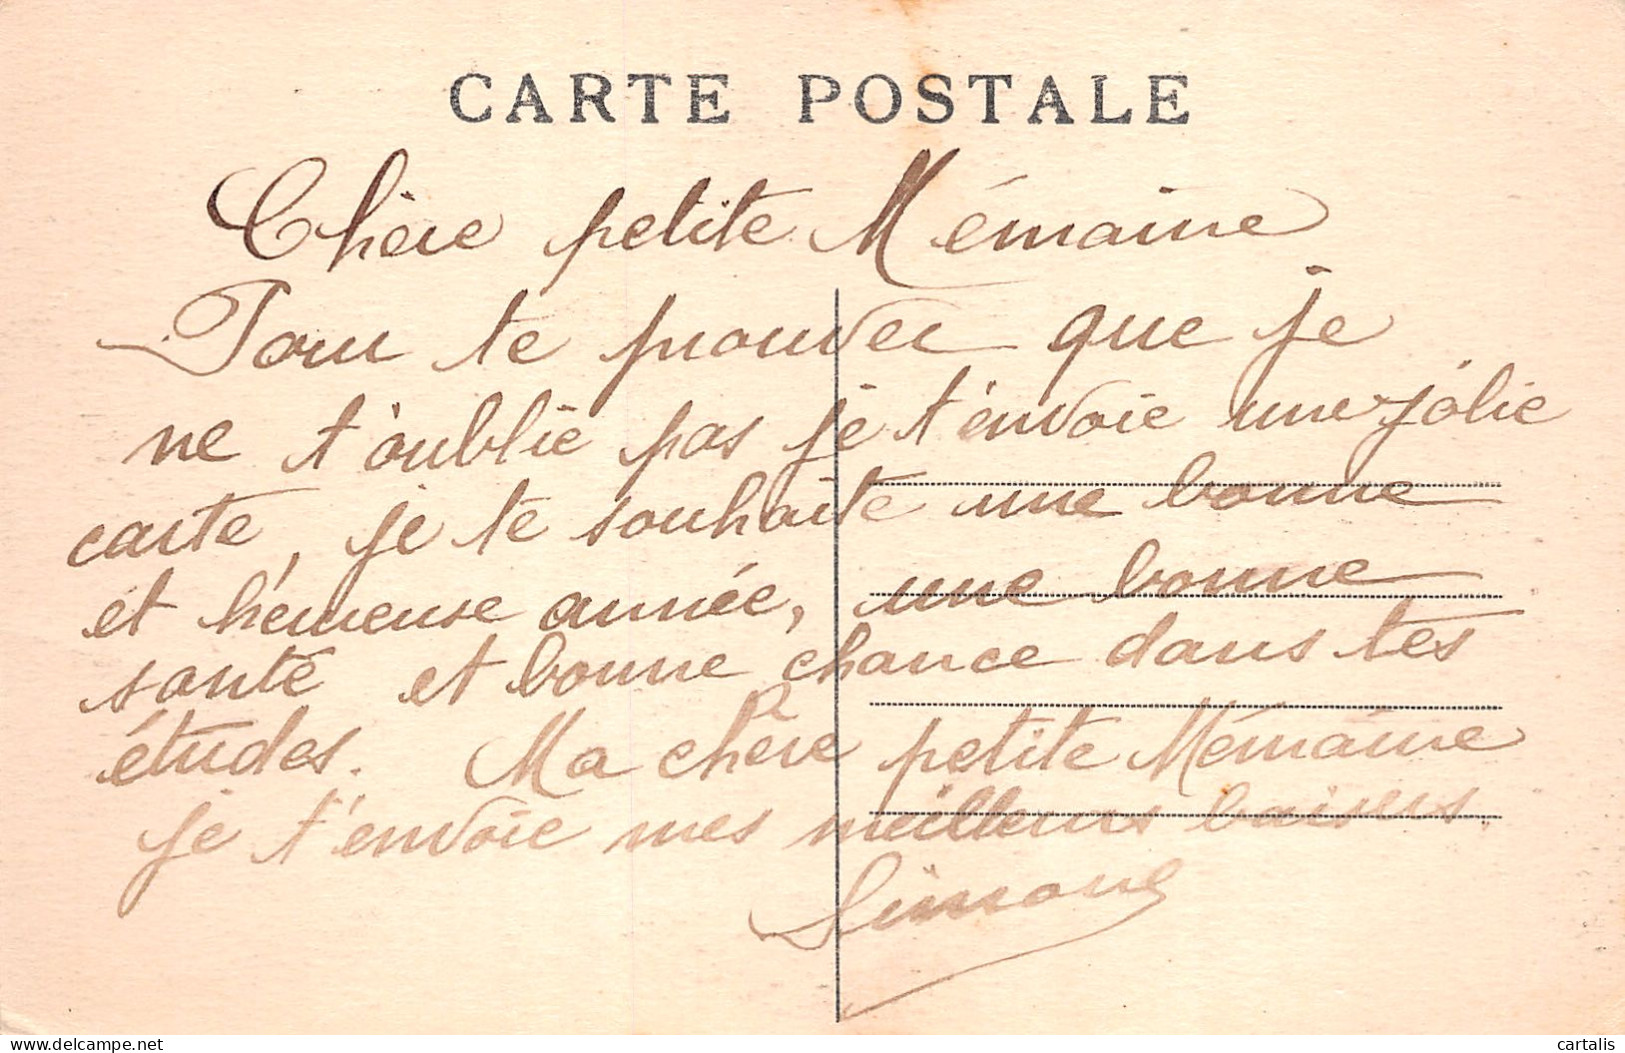 CARTE POSTALE
Chère petite Mémaine
Pour te prouver que je
ne t'oublie pas je t'envoie une jolie
carte, je te souhaite une bonne
et heureuse année, une bonne
santé et bonne chance dans tes
études. Ma chère petite Mémaine
je t'envoie mes meilleurs baisers.
Simone
delcampe.net
cartalis